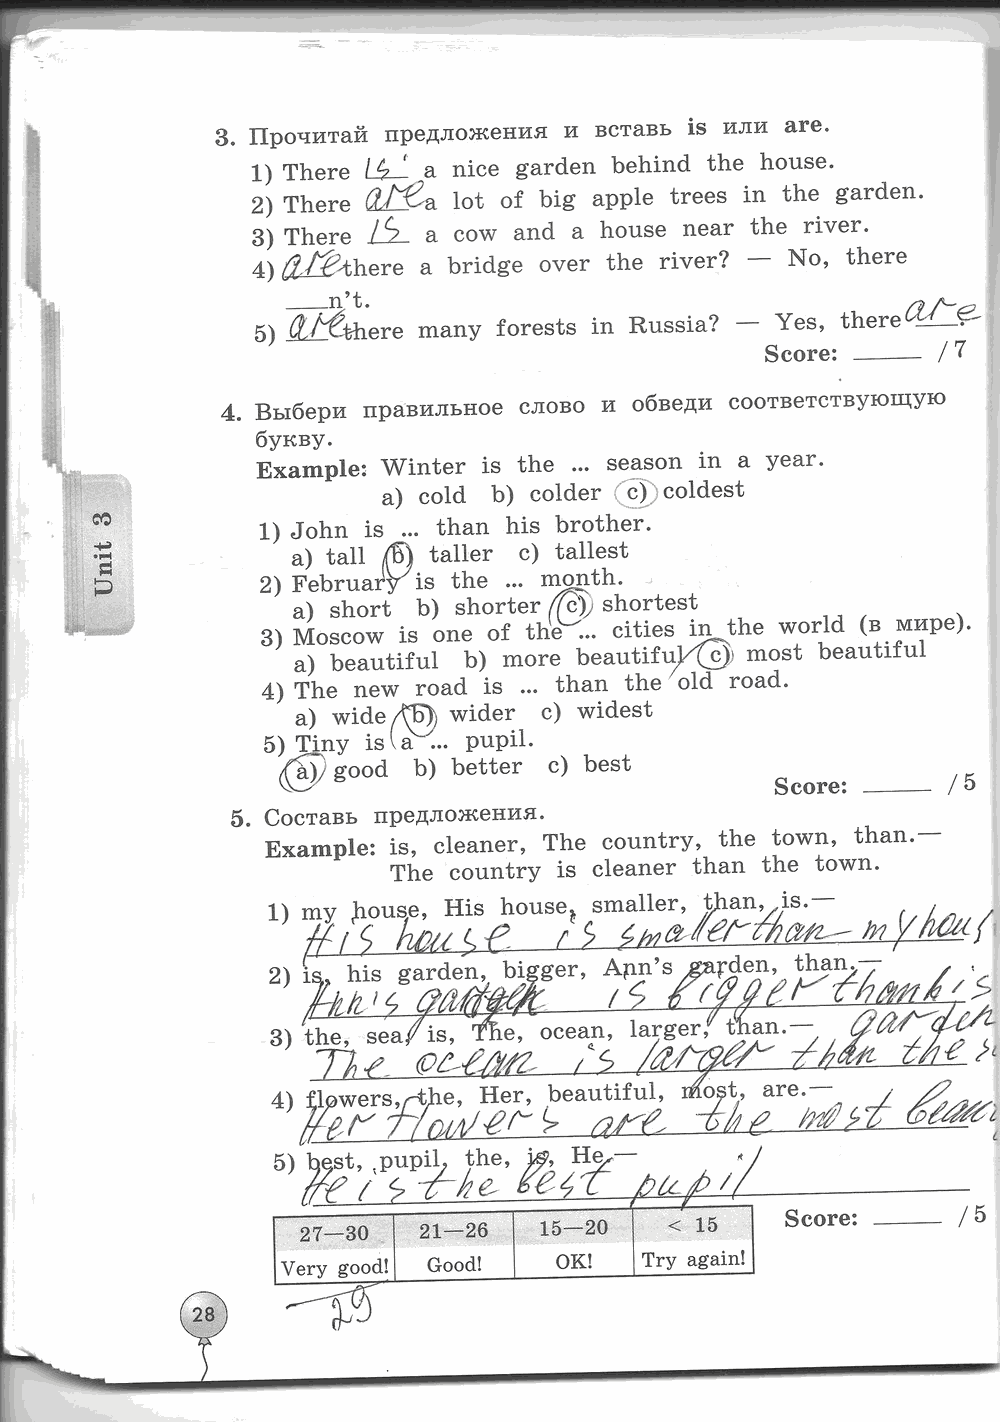 3. Прочитай предложения и вставь is или are.
1) There is a nice garden behind the house.
2) There are a lot of big apple trees in the garden.
3) There is a cow and a house near the river.
4) are there a bridge over the river? — No, there
___n't.
5) are there many forests in Russia? — Yes, there are.
Score: _____ /7
4. Выбери правильное слово и обведи соответствующую
букву.
Example: Winter is the ... season in a year.
a) cold b) colder c) coldest
1) John is ... than his brother.
a) tall b) taller c) tallest
2) February is the ... month.
a) short b) shorter c) shortest
3) Moscow is one of the ... cities in the world (в мире).
a) beautiful b) more beautiful c) most beautiful
4) The new road is ... than the old road.
a) wide b) wider c) widest
5) Tiny is a ... pupil.
a) good b) better c) best
Score: _____ /5
5. Составь предложения.
Example: is, cleaner, The country, the town, than.—
The country is cleaner than the town.
1) my house, His house, smaller, than, is.—
His house is smaller than my hous
2) is, his garden, bigger, Ann's garden, than.—
Ann's garden is bigger than his
garden
3) the, sea, is, The, ocean, larger, than.—
The ocean is larger than the s
4) flowers, the, Her, beautiful, most, are.—
Her flowers are the most beau
5) best, pupil, the, is, He.—
He is the best pupil
Score: _____ /5
27—30 21—26 15—20 < 15
Very good! Good! OK! Try again!
29
28
Unit 3